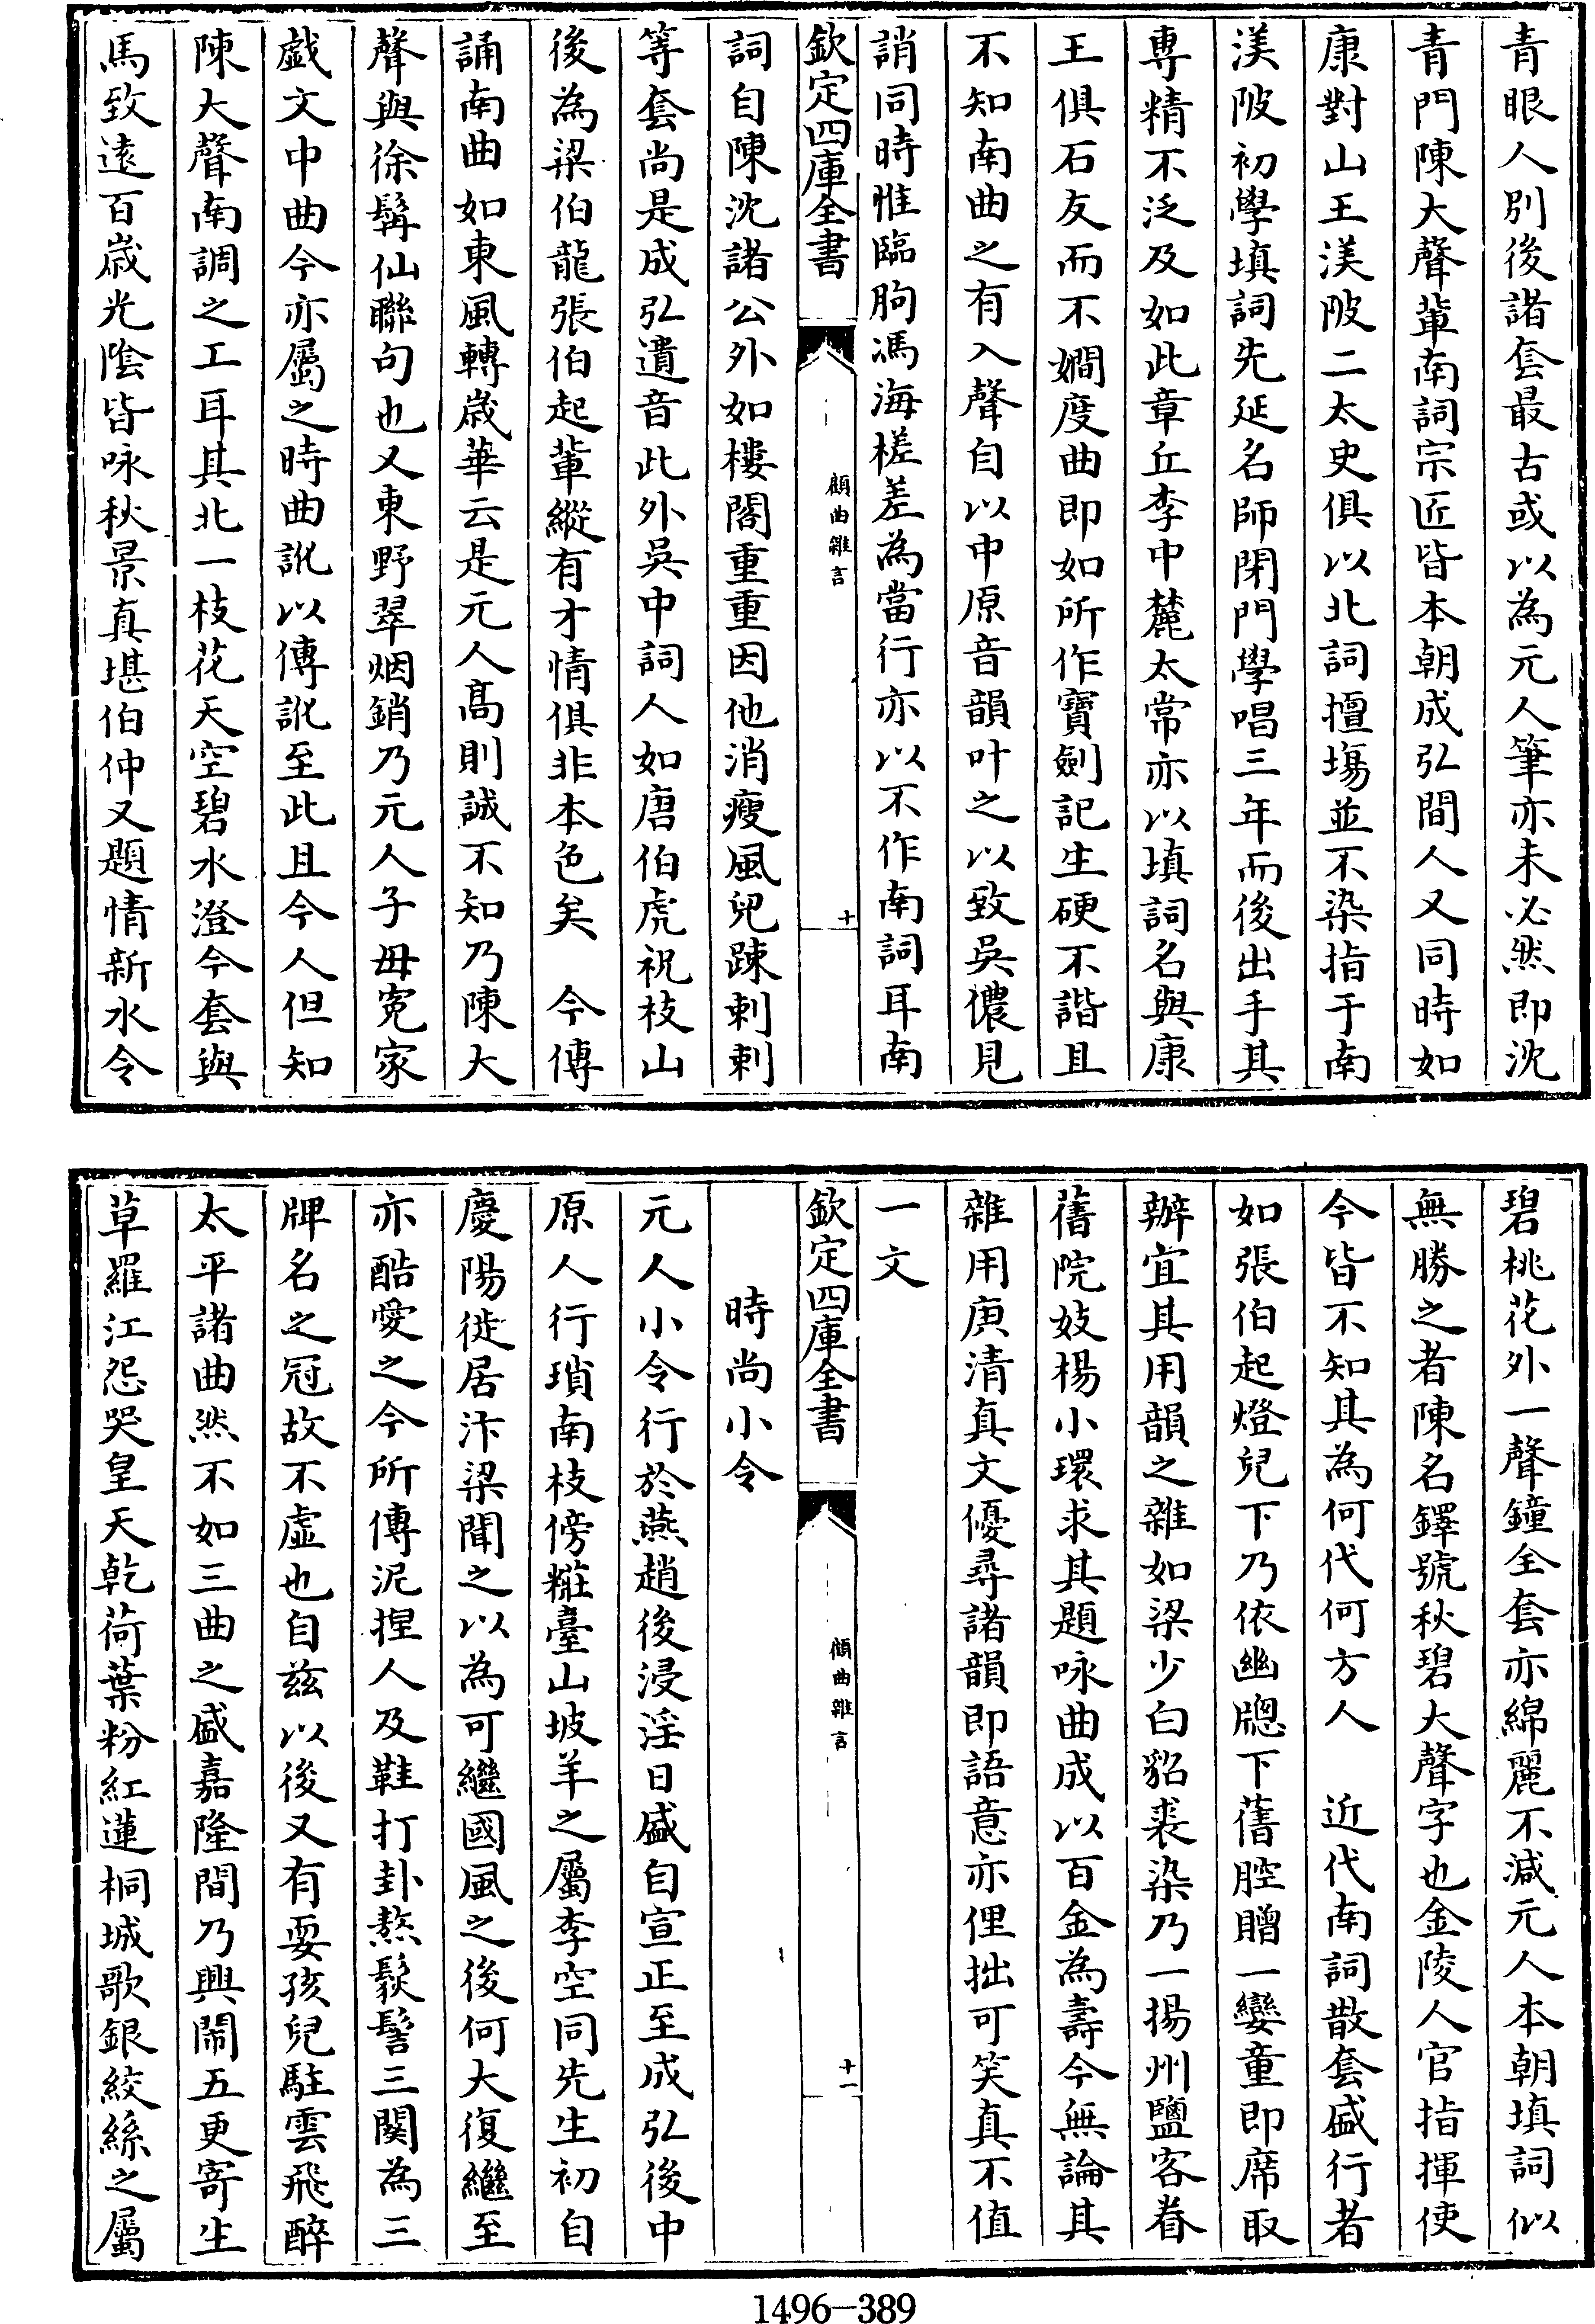 青眼人別後諸套最古或以為元人筆亦未必然即沈
青門陳大聲軰南詞宗匠皆本朝成弘間人又同時如
康對山王渼陂二太史俱以北詞擅塲並不染指于南
渼陂初學填詞先延名師閉門學唱三年而後出手其
專精不泛及如此章丘李中麓太常亦以填詞名與康
王俱石友而不嫺度曲即如所作寶劍記生硬不諧且
不知南曲之有入聲自以中原音韻叶之以致吳儂見
誚同時惟臨朐馮海槎差為當行亦以不作南詞耳南
欽定四庫全書
顧曲雜言
十
詞自陳沈諸公外如樓閣重重因他消瘦風兒踈剌剌
等套尚是成弘遺音此外吳中詞人如唐伯虎祝枝山
後為梁伯龍張伯起軰縱有才情俱非本色矣　今傳
誦南曲如東風轉歲華云是元人高則誠不知乃陳大
聲與徐髯仙聯句也又東野翠烟銷乃元人子母寃家
戯文中曲今亦屬之時曲訛以傳訛至此且今人但知
陳大聲南調之工耳其北一枝花天空碧水澄今套與
馬致遠百歲光陰皆咏秋景真堪伯仲又題情新水令
碧桃花外一聲鐘全套亦綿麗不減元人本朝填詞似
無勝之者陳名鐸號秋碧大聲字也金陵人官指揮使
今皆不知其為何代何方人　近代南詞散套盛行者
如張伯起燈兒下乃依幽牕下舊腔贈一孌童即席取
辦宜其用韻之雜如梁少白貂裘染乃一揚州鹽客眷
舊院妓楊小環求其題咏曲成以百金為壽今無論其
雜用庚清真文侵尋諸韻即語意亦俚拙可笑真不值
一文
欽定四庫全書
顧曲雜言
十一
時尚小令
元人小令行於燕趙後浸淫日盛自宣正至成弘後中
原人行瑣南枝傍粧臺山坡羊之屬李空同先生初自
慶陽徙居汴梁聞之以為可繼國風之後何大復繼至
亦酷愛之今所傳泥捏人及鞋打卦熬鬏髻三闋為三
牌名之冠故不虛也自茲以後又有耍孩兒駐雲飛醉
太平諸曲然不如三曲之盛嘉隆間乃興鬧五更寄生
草羅江怨哭皇天乾荷葉粉紅蓮桐城歌銀絞絲之屬
1496—389